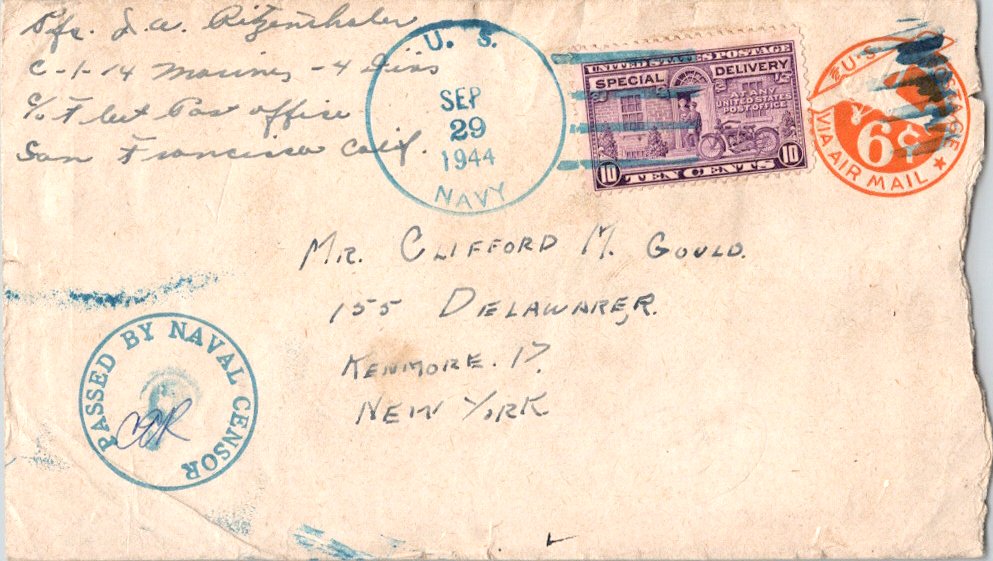 Pfc. J. A. Ritzenthaler
C-1-14 Marines - 4 Div
c/o Fleet Post office
San Francisco Calif.
U. S.
SEP
29
1944
NAVY
UNITED STATES POSTAGE
SPECIAL DELIVERY
AT ANY
UNITED STATES
POST OFFICE
10 TEN CENTS 10
U.S. POSTAGE
6¢
VIA AIR MAIL
MR. CLIFFORD M. GOULD.
155 DELAWARE, R.
KENMORE. 17.
NEW YORK
PASSED BY NAVAL CENSOR